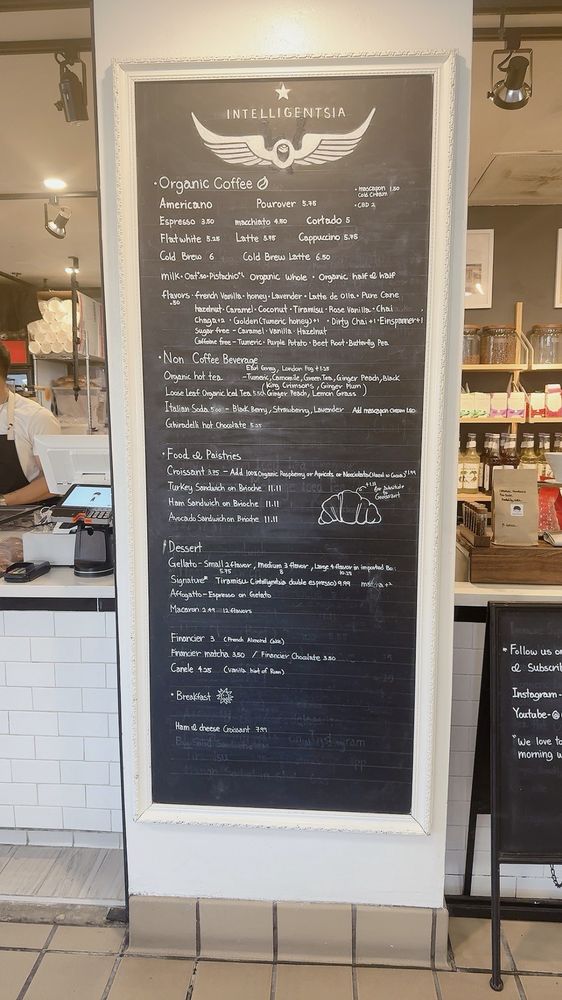 INTELLIGENTSIA
• Organic Coffee
• mascapon 1.50
cold cream
• CBD 2
Americano Pourover 5.75
Espresso 3.50 macchiato 4.50 Cortado 5
Flat white 5.25 Latte 5.75 Cappuccino 5.75
Cold Brew 6 Cold Brew Latte 6.50
milk • Oat • Pistachio • Organic Whole • Organic half & half
flavors • french Vanilla • honey • Lavender • Latte de olla • Pure Cane
.50
hazelnut • Caramel • Coconut • Tiramisu • Rose Vanilla • Chai
Chaga +2 • Golden (Tumeric honey) +1 • Dirty Chai +1 • Einspanner +1
Sugar free - Caramel • Vanilla • Hazelnut
Caffeine free - Tumeric • Purple Potato • Beet Root • Butterfly Pea
• Non Coffee Beverage
Earl Grey, London Fog +1.25
Organic hot tea - Tumeric, Camomile, Green Tea, Ginger Peach, Black
(King Crimsons, Ginger Plum)
Loose Leaf Organic Iced Tea 5.50 (Ginger Peach, Lemon Grass)
Italian Soda 5.00 - Black Berry, Strawberry, Lavender Add mascapon Cream 1.50
Ghiradelli hot Chocolate 5.25
• Food & Paistries
Croissant 3.75 - Add 100% Organic Raspberry or Apricots or Nocciolata 1.99
Turkey Sandwich on Brioche 11.11
Ham Sandwich on Brioche 11.11
Avocado Sandwich on Brioche 11.11
+1.11
for substitute
to
Croissant
Dessert
Gellato - Small 2 flavor, Medium 3 flavor, Large 4 flavor in imported
5.75 8 10.25
Signature Tiramisu (intelligentsia double espresso) 9.99 matcha +2
Affogatto - Espresso on Gelato
Macaron 2.99 12 flavors
Financier 3 (French Almond Cake)
Financier matcha 3.50 / Financier Chocolate 3.50
Canele 4.25 (Vanilla hint of Rum)
• Breakfast
Ham & cheese Croissant 7.99
* Follow us on
& Subscri
Instagram -
Youtube - @
"We love to
morning w